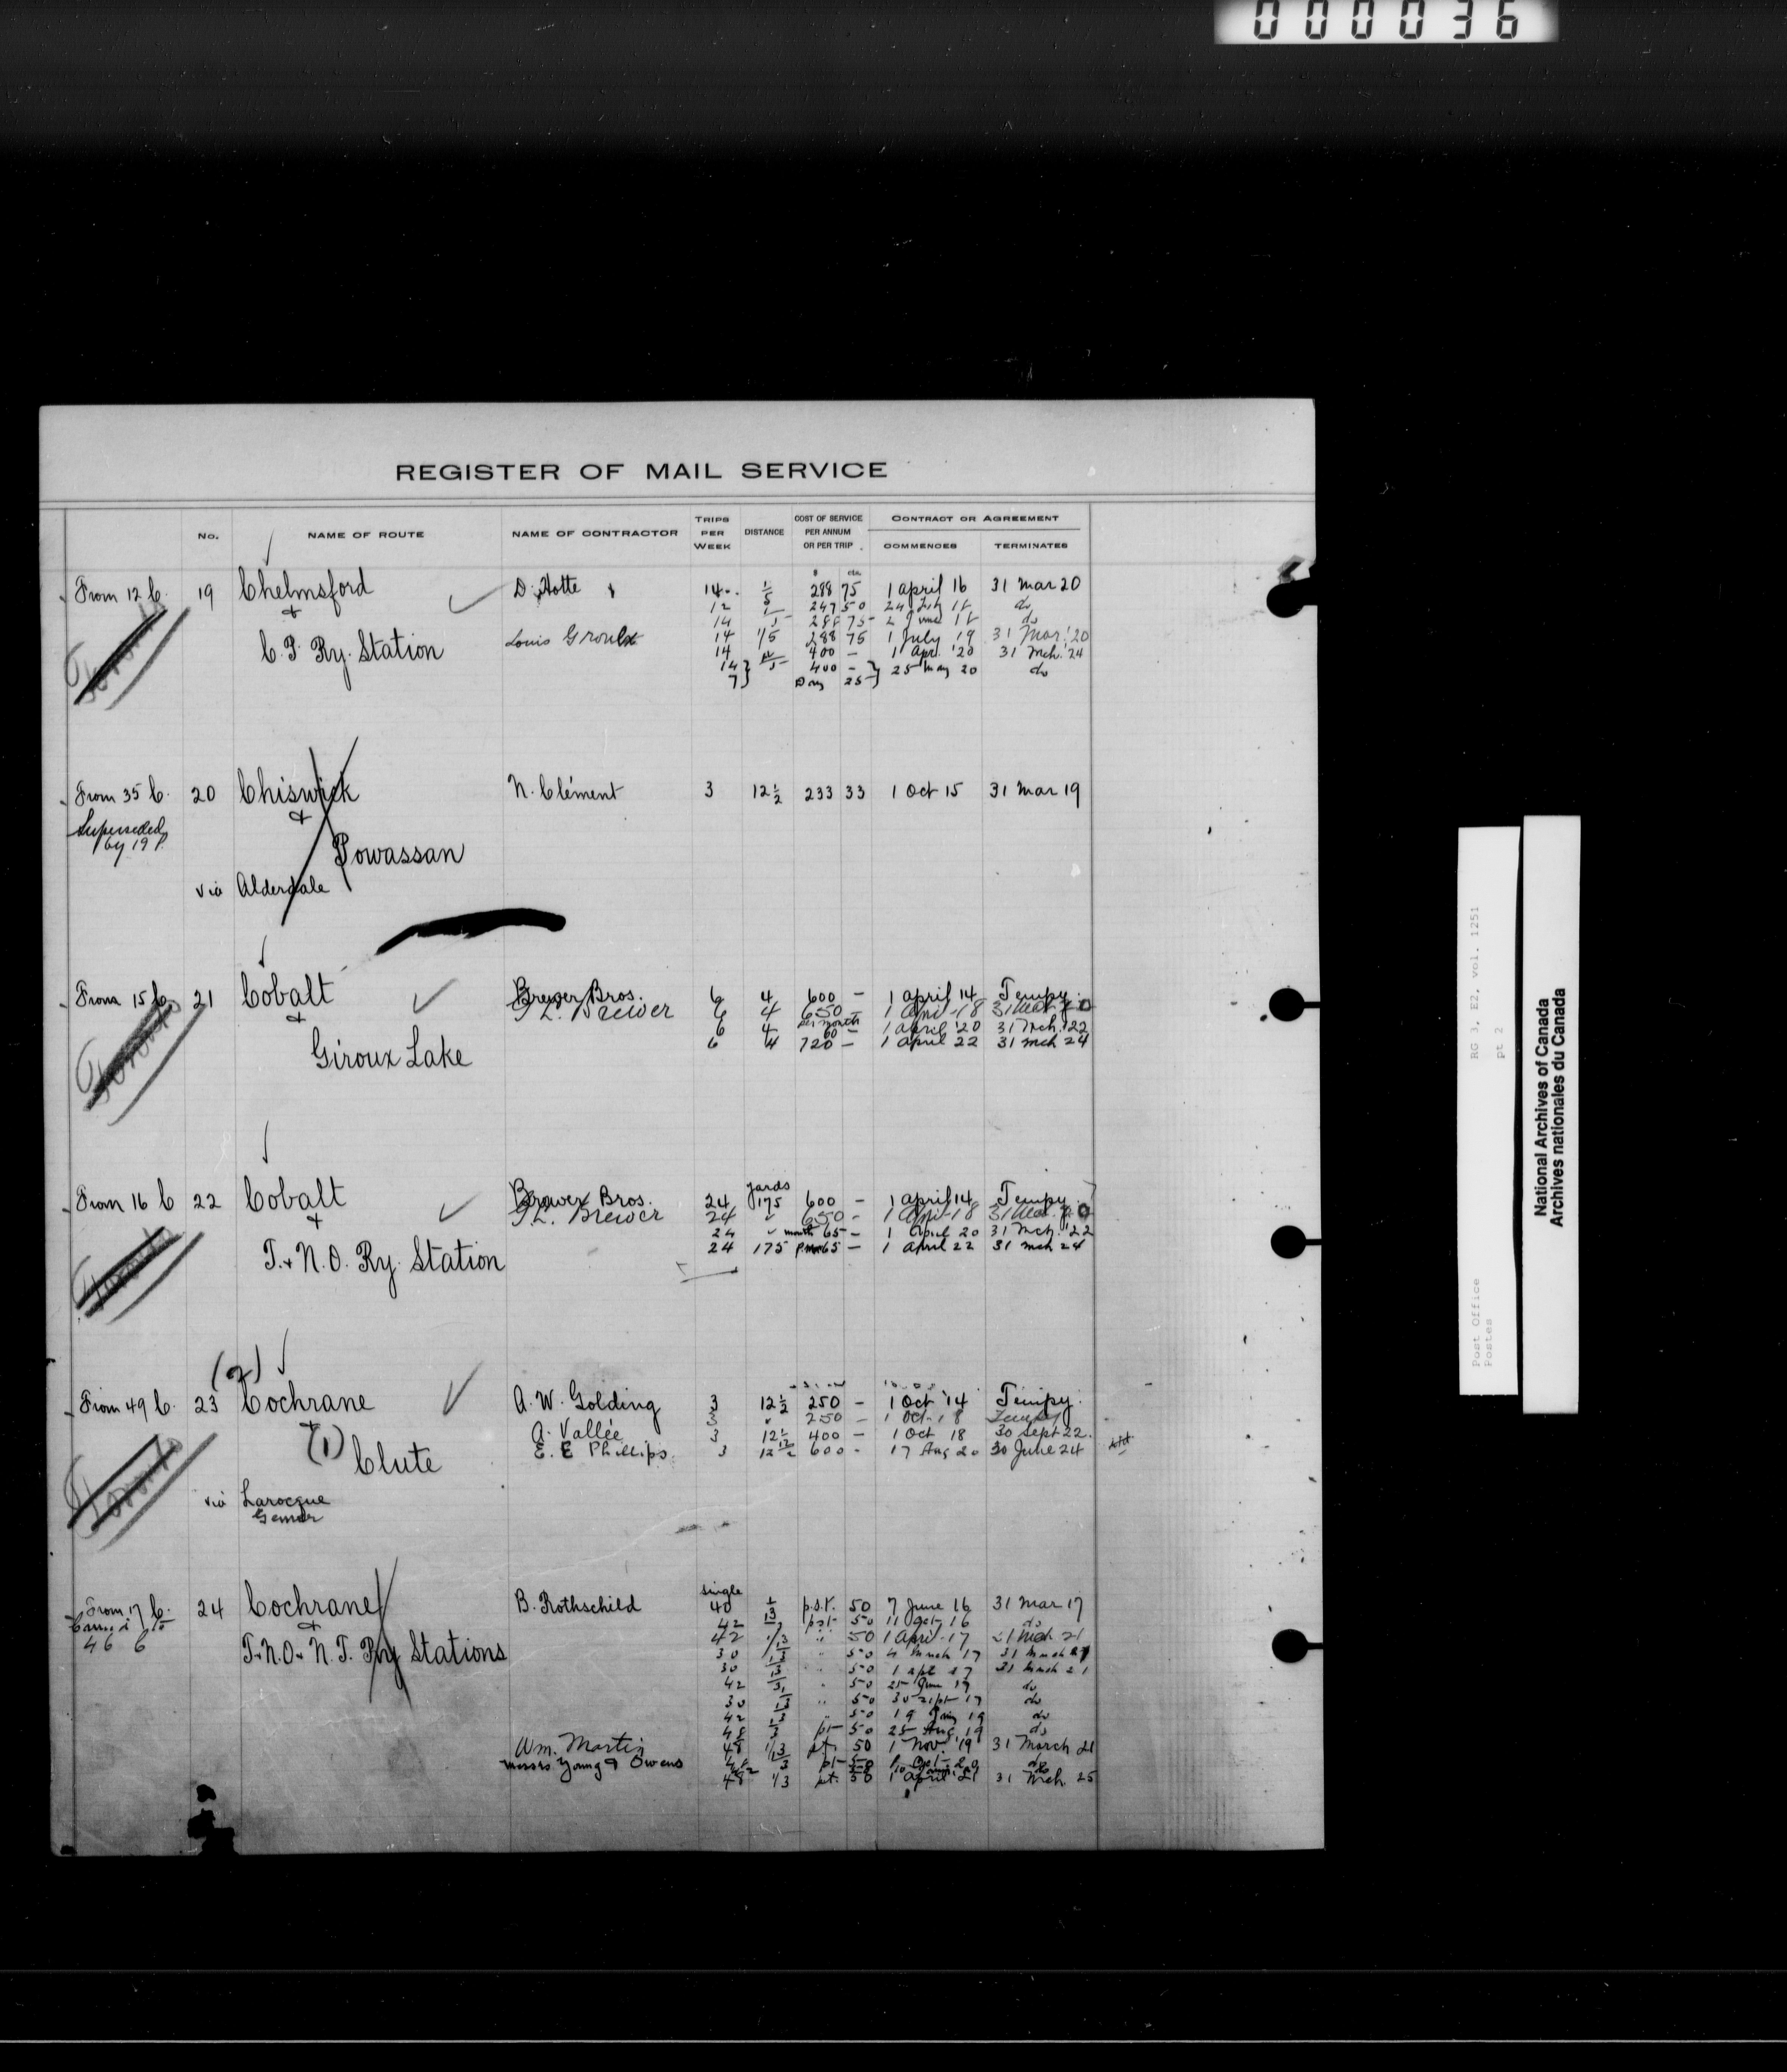 000036
REGISTER OF MAIL SERVICE
No. NAME OF ROUTE NAME OF CONTRACTOR TRIPS PER WEEK DISTANCE COST OF SERVICE PER ANNUM OR PER TRIP CONTRACT OR AGREEMENT COMMENCES TERMINATES
From 12 C. 19 Chelmsford D. Hotte 14 1/5 288 75 1 April 16 31 Mar 20
12 247 50 do
& 14 288 75 do
C.P. Ry. Station Louis Groulx 14 1/5 288 75 1 July 19 31 Mar. '20
14 400 - 1 Apr. '20 31 Mch. '24
14 400 - 25 May 20 do
7 Day 25
From 35 C. 20 Chiswick N. Clément 3 12 1/2 233 33 1 Oct 15 31 Mar 19
Superseded by 19 P.
&
Powassan
via Alderdale
From 15 C. 21 Cobalt Brewer Bros. 6 4 600 - 1 April 14 Tempy.
& Brewer 6 4 650 -
6 4 per month 60 - 1 April '20 31 Mch. '22
Giroux Lake 6 4 720 - 1 April 22 31 Mch 24
From 16 C 22 Cobalt Brewer Bros. 24 yards 175 600 - 1 April 14 Tempy.
& Brewer 24 650 -
24 month 65 - 1 April 20 31 Mch. '22
T. & N.O. Ry. Station 24 175 65 - 1 April 22 31 Mch 24
(2)
From 49 C. 23 Cochrane A. W. Golding 3 12 1/2 250 - 1 Oct '14 Tempy.
& 3 250 - 1 Oct 18 Tempy
(1) A. Vallée 3 12 1/2 400 - 1 Oct 18 30 Sept 22.
Clute E. E Phillips. 3 12 1/2 600 - 17 Aug 20 30 June 24
via Larocque
From 17 C. 24 Cochrane B. Rothschild single 40 1/3 p.s.t. 50 7 June 16 31 Mar 17
46 C & 42 pst 50 do
T. & N.O. & N.T. Ry Stations 42 1/3 " 50 1 April 17
30 1/3 " 50 4 March 17
30 1/3 " 50 31 March 21
42 " 50 25 June 17 do
30 1/3 " 50 30 Sept 17 do
42 1/3 " 50 do
48 pt 50 25 Aug 19 do
Wm. Martin 48 1/3 pt. 50 1 Nov. '19 31 March 21
Messrs Young & Owens pt 50 do
48 1/3 pt. 50 1 April '21 31 Mch. 25
RG 3, E2, vol. 1251
pt 2
Post Office
Postes
National Archives of Canada
Archives nationales du Canada